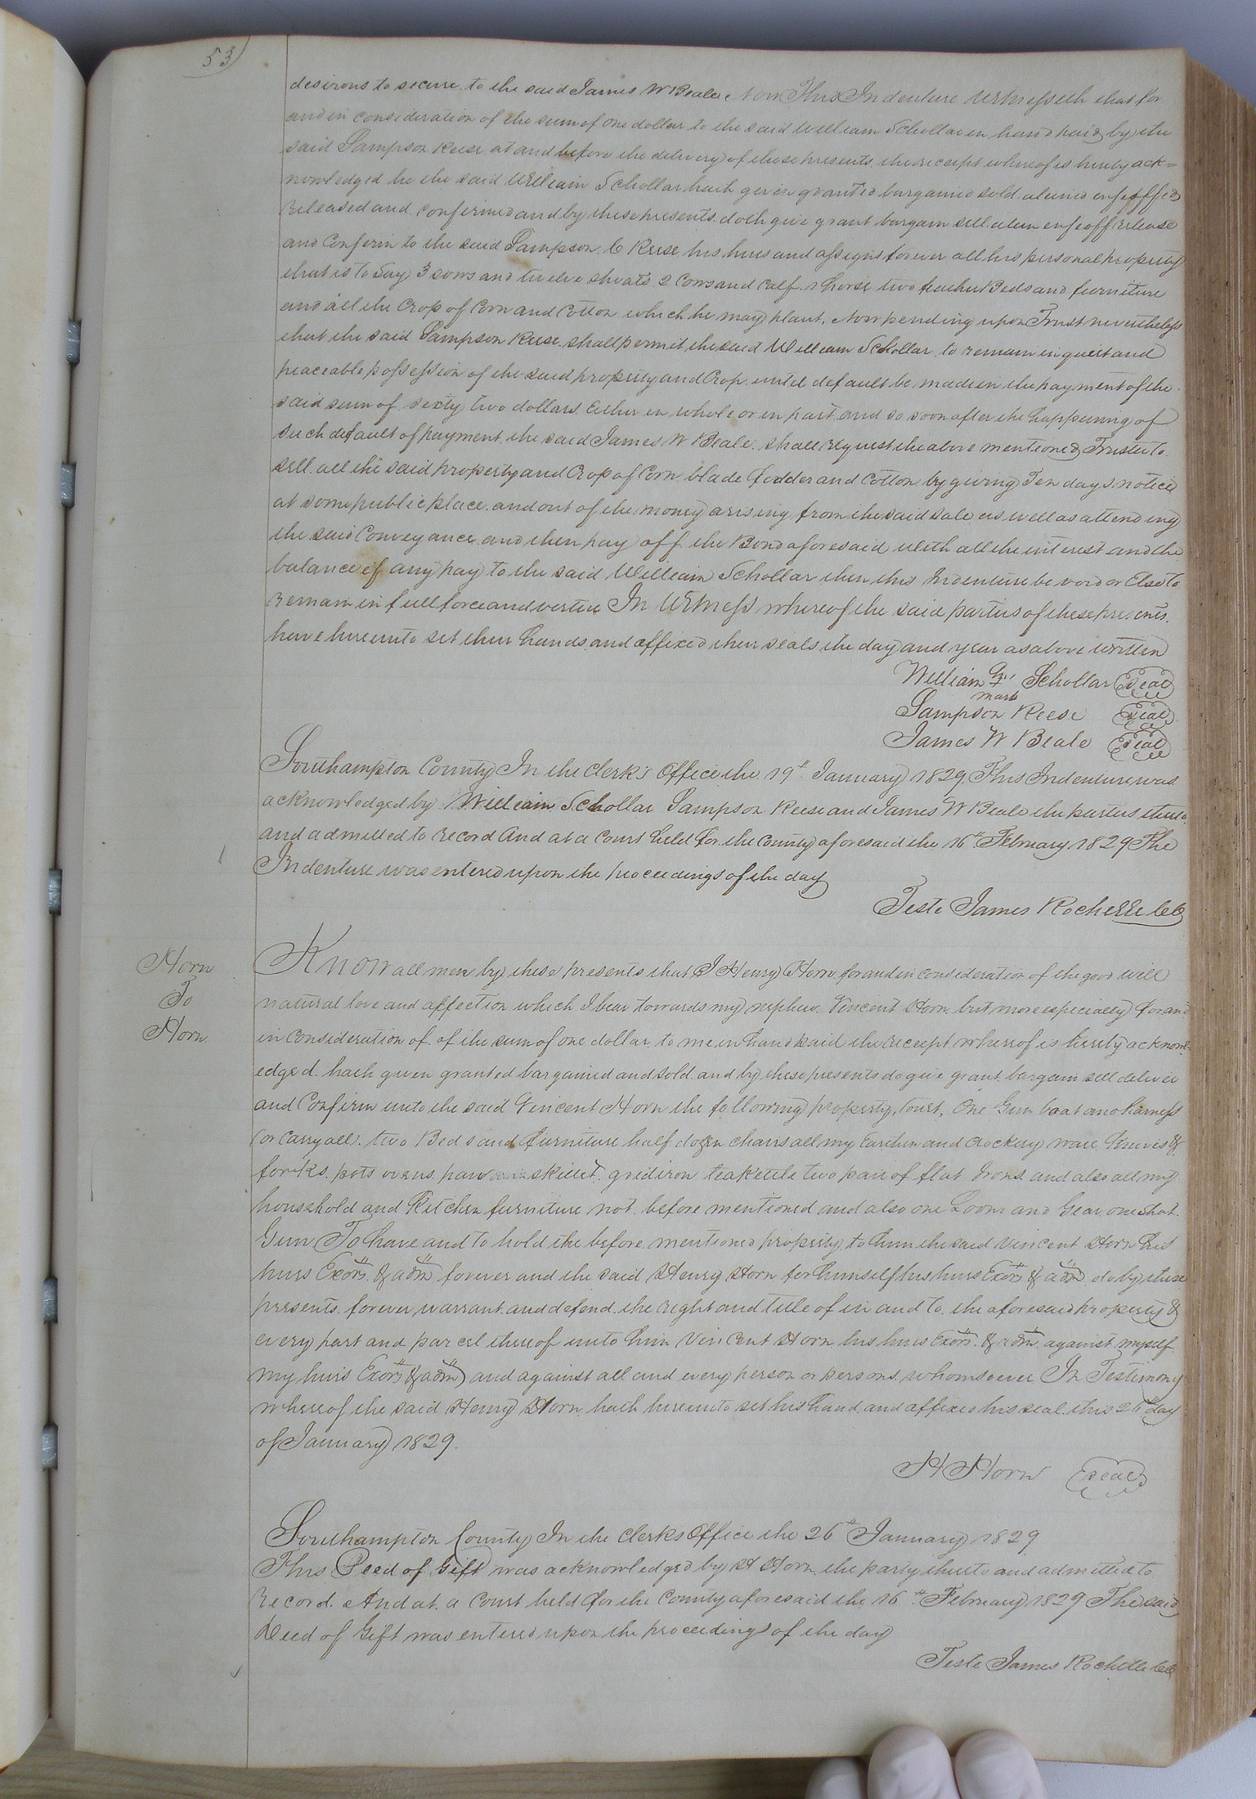 53
desirous to secure to the said James W Beale Now This Indenture Witnesseth that for
and in consideration of the sum of one dollar to the said William Schollar in hand paid by the
said Sampson Reese at and before the delivery of these presents the receipt whereof is hereby ack=
nowledged he the said William Schollar hath given granted bargained sold aliened enfeoffed
released and confirmed and by these presents doth give grant bargain sell alien enfeoff release
and Confirm to the said Sampson C Reese his heirs and assigns forever all his personal property
that is to Say 3 sows and twelve shoats 2 Cows and Calf 1 horse two feather Beds and furniture
and all the Crop of Corn and Cotton which he may plant. Now pending upon Trust nevertheless
that the said Sampson Reese shall permit the said William Schollar to remain in quiet and
peaceable possession of the said property and Crop until default be made in the payment of the
said sum of sixty two dollars Either in whole or in part and so soon after the happening of
such default of payment the said James W Beale shall request the above mentioned Trustee to
sell all the said property and Crop of Corn blade fodder and Cotton by giving Ten days notice
at some public place and out of the money arising from the said sale as well as attending
the said Conveyance and then pay off the Bond aforesaid with all the interest and the
balance if any pay to the said William Schollar then this Indenture be void or Else to
remain in full force and vertue In Witness whereof the said parties of these presents
have hereunto set their hands and affixed their seals the day and year as above written
William Schollar Seal
mark
Sampson Reese Seal
James W Beale Seal
Southampton County In the Clerk's Office the 19th January 1829 This Indenture was
acknowledged by William Schollar Sampson Reese and James W Beale the parties thereto
and admitted to record And at a Court held for the County aforesaid the 16th February 1829 The
Indenture was entered upon the proceedings of the day
Teste James Rochelle CC
Horn
To
Horn
Know all men by these presents that I Henry Horn for and in consideration of the good will
natural love and affection which I bear towards my nephew Vincent Horn but more especially for and
in consideration of of the sum of one dollar to me in hand paid the receipt whereof is hereby acknowl
edged hath given granted bargained and sold and by these presents do give grant bargain sell deliver
and Confirm unto the said Vincent Horn the following property, towit, One Gum boat and harness
(or Carry all) two Beds and furniture half dozen chairs all my Earthen and Crockery ware Knives &
forks pots ovens pan skillet gridiron teakettle two pair of flat Irons and also all my
household and Kitchen furniture not before mentioned and also one Loom and Gear one shot
Gun To have and to hold the before mentioned property to him the said Vincent Horn his
heirs Exors & adm forever and the said Henry Horn for himself his heirs Exors & adm do by these
presents forever warrant and defend the right and title of in and to the aforesaid property &
every part and parcel thereof unto him Vincent Horn his heirs Exors & adm against myself
my heirs Exors & adm and against all and every person or persons whomsoever In Testimony
whereof the said Henry Horn hath hereunto set his hand and affixed his seal this 26 day
of January 1829.
H Horn Seal
Southampton County In the Clerks Office the 26th January 1829
This Deed of Gift was acknowledged by H Horn the party thereto and admitted to
Record. And at a Court held for the County aforesaid the 16th February 1829 The said
Deed of Gift was entered upon the proceedings of the day
Teste James Rochelle CC